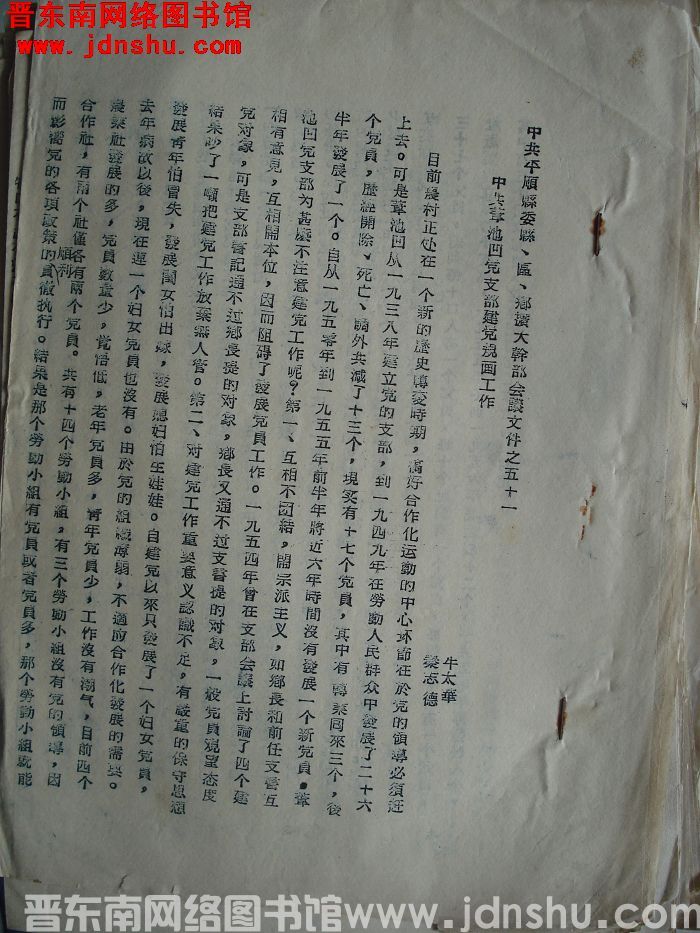 晋东南网络图书馆
www.jdnshu.com
中共平順縣委縣、區、鄉擴大幹部会議文件之五十一
中共葦池凹党支部建党規画工作
牛太華
秦志德
目前農村正处在一个新的歷史轉变時期，搞好合作化运動的中心环節在於党的領導必須赶
上去。可是葦池凹从一九三八年建立党的支部，到一九四九年在勞動人民群众中發展了二十六
个党員，歷經開除、死亡、調外共减了十三个，現实有十七个党員，其中有轉業囘來三个，後
半年發展了一个。自从一九五零年到一九五五年前半年將近六年時間沒有發展一个新党員。葦
池凹党支部为甚麽不注意建党工作呢？第一、互相不团結，鬧宗派主义，如鄉長和前任支書互
相有意見，互相開本位，因而阻碍了發展党員工作。一九五四年曾在支部会議上討論了四个建
党对象，可是支部書記通不过鄉長提的对象，鄉長又通不过支書提的对象，一般党員观望态度
結果吵了一頓把建党工作放棄無人管。第二、对建党工作重要意义認識不足，有嚴重的保守思想
發展青年怕冒失，發展閨女怕出嫁，發展媳妇怕生娃娃。自建党以來只發展了一个妇女党員，
去年病故以後，現在連一个妇女党員也沒有。由於党的組織薄弱，不適应合作化發展的需要。
農業社發展的多，党員数量少，覚悟低，老年党員多，青年党員少，工作沒有潮气，目前四个
合作社，有兩个社僅各有兩个党員。共有十四个勞動小組，有三个勞動小組沒有党的領導，因
而影响党的各項政策的順利貫徹执行。結果是那个勞動小組有党員或者党員多，那个勞動小組就能
晋东南网络图书馆 www.jdnshu.com